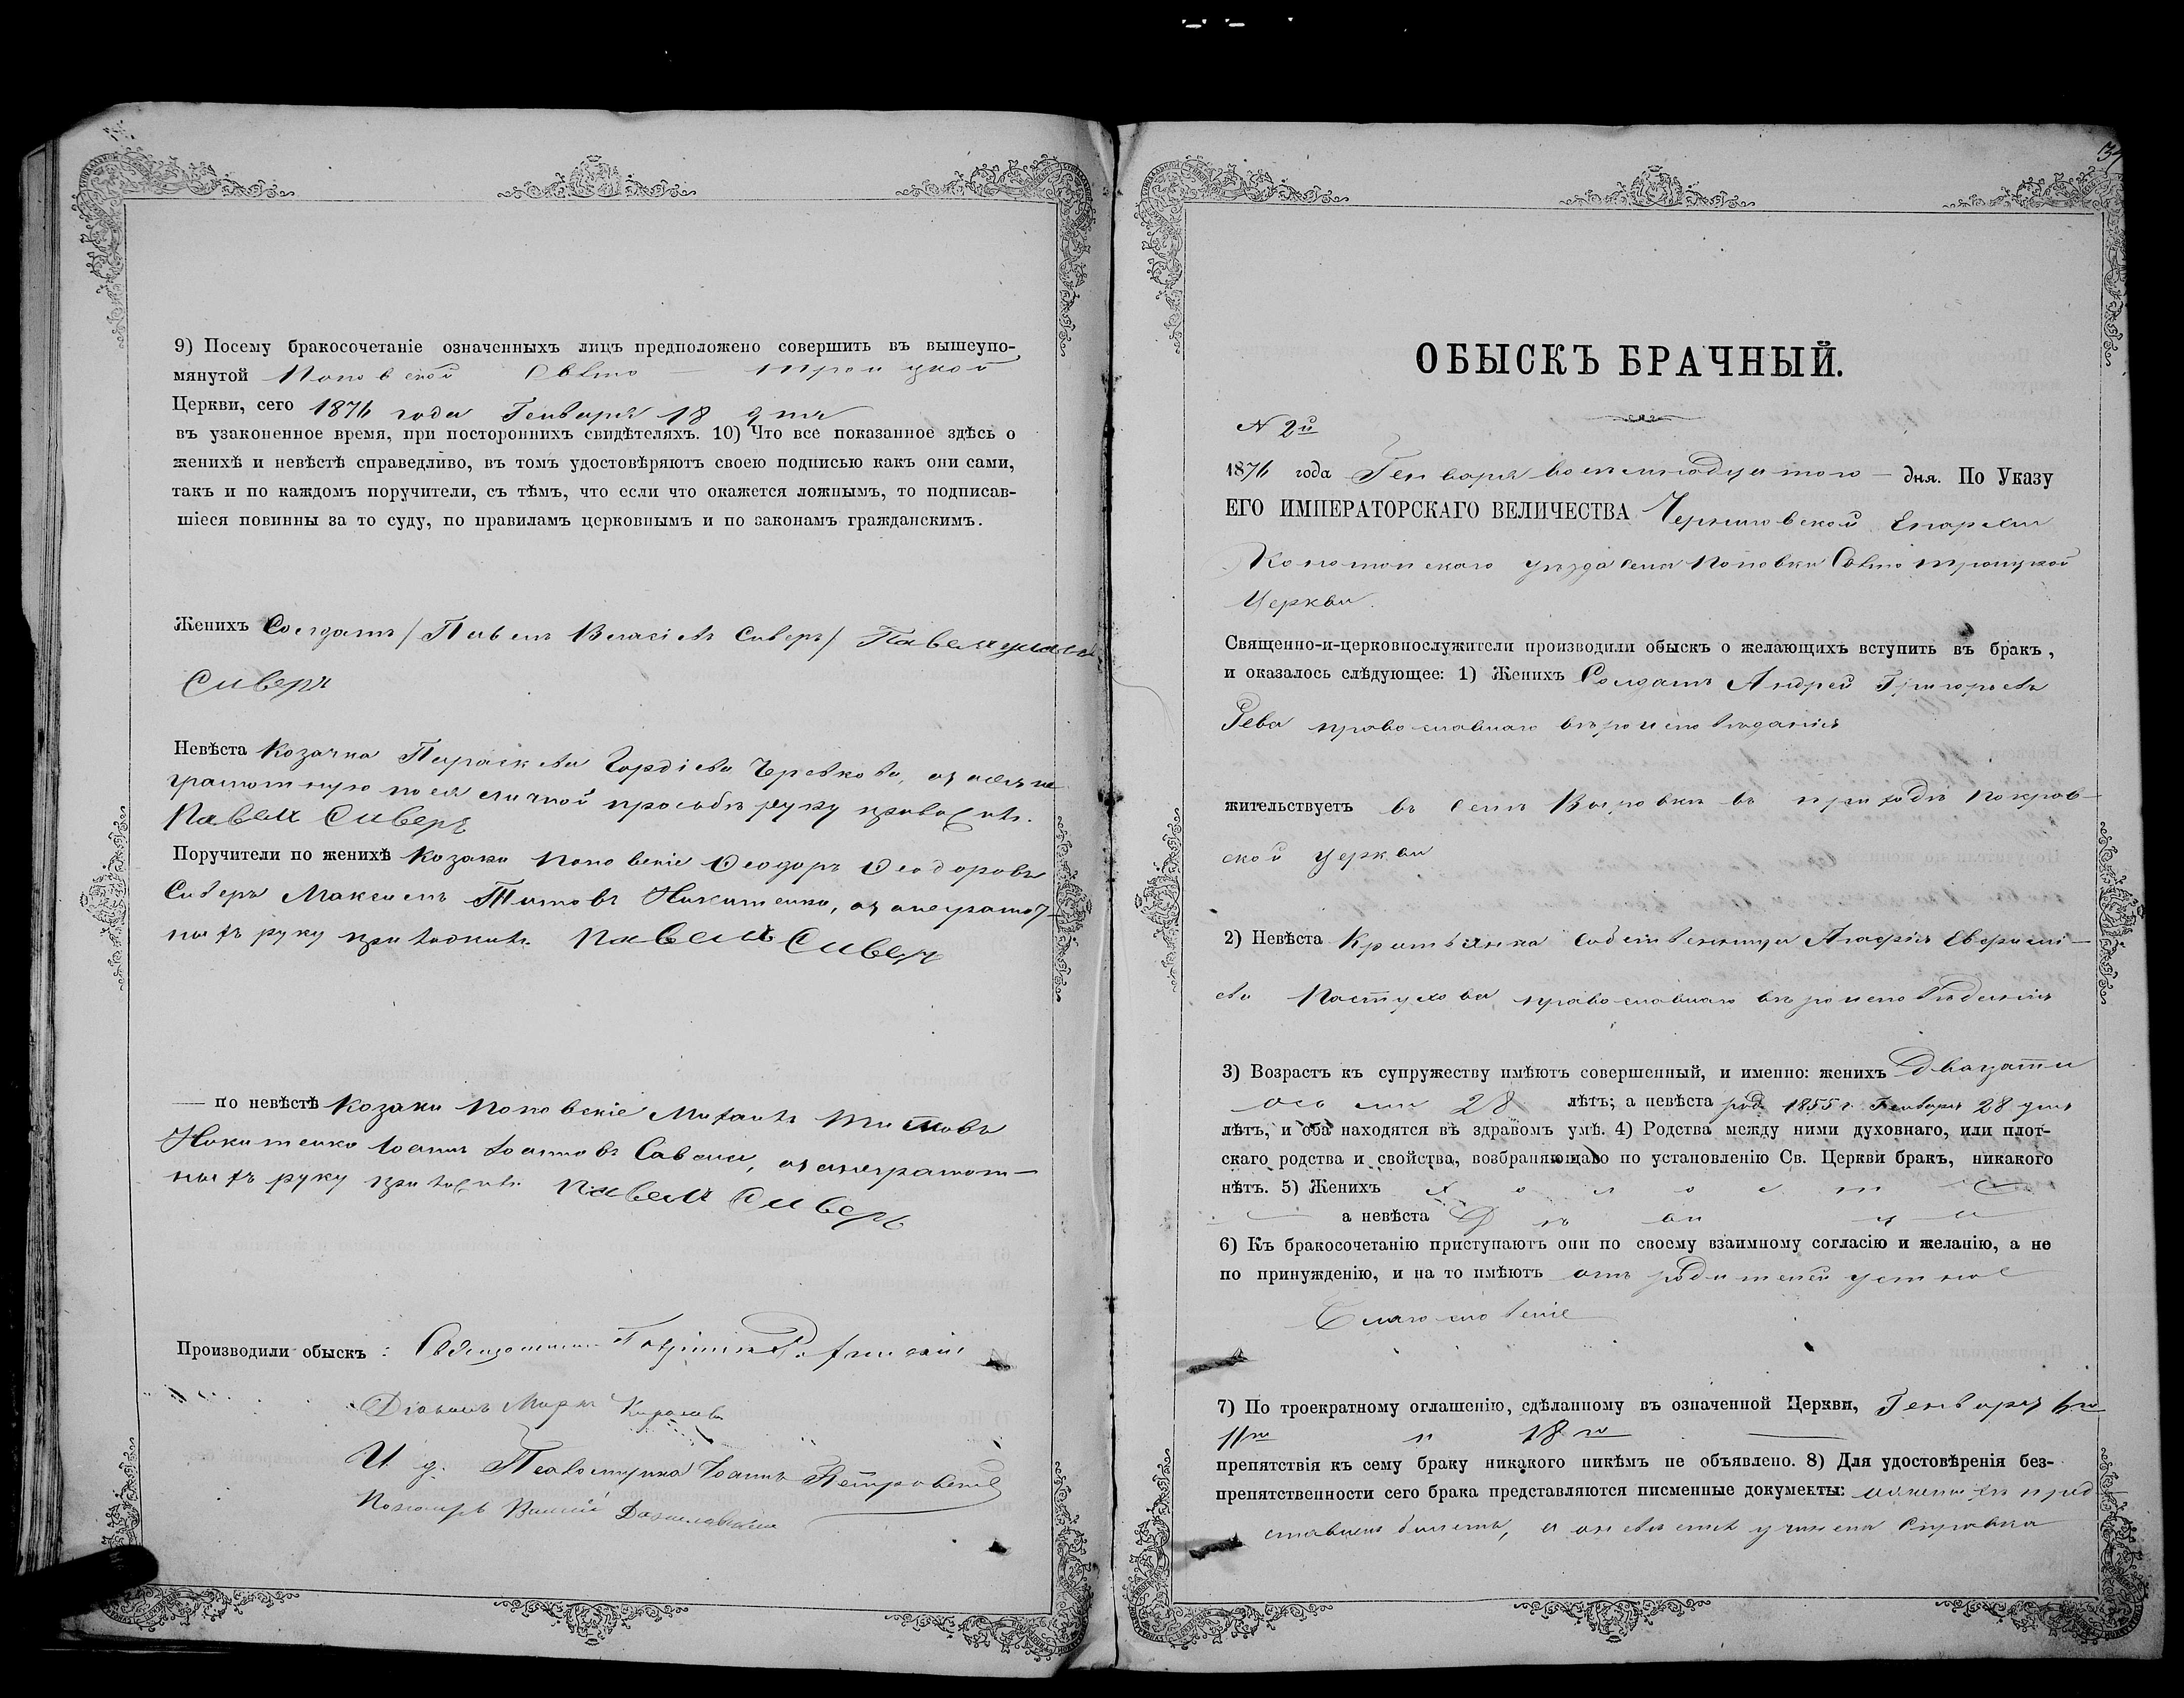 9) Посему бракосочетаніе означенныхъ лицъ предположено совершить въ вышеупо-
мянутой Поповской Свято — Троицкой
Церкви, сего 1876 года Генваря 18 дня
въ узаконенное время, при постороннихъ свидѣтеляхъ. 10) Что все показанное здѣсь о
женихѣ и невѣстѣ справедливо, въ томъ удостовѣряютъ своею подписью какъ они сами,
такъ и по каждомъ поручители, съ тѣмъ, что если что окажется ложнымъ, то подписав-
шіеся повинны за то суду, по правиламъ церковнымъ и по законамъ гражданскимъ.
Женихъ Солдатъ / Павелъ Власіевъ Сиверъ / Павелъ
Сиверъ
Невѣста Козачка Параскева Гордіева
грамотную по ея личной просьбѣ руку
Павелъ Сиверъ
Поручители по женихѣ Козаки Поповскіе Ѳеодоръ Ѳеодоровъ
Сиверъ Максимъ Титовъ Никитенко, а за неграмот-
ныхъ руку приложилъ Павелъ Сиверъ
— по невѣстѣ Козаки Поповскіе Михаилъ Титовъ
Никитенко Іоаннъ Іоанновъ Савена, а за неграмот-
ныхъ руку приложилъ Павелъ Сиверъ
Производили обыскъ : Священникъ
Діаконъ Маркъ
И. д. Псаломщика Іоаннъ Петровскій
Пономарь
ОБЫСКЪ БРАЧНЫЙ.
N 2й
1876 года Генваря восемнадцатого — дня. По Указу
ЕГО ИМПЕРАТОРСКАГО ВЕЛИЧЕСТВА Черниговской Епархіи
Конотопскаго уѣзда села Поповки Свято Троицкой
Церкви.
Священно-и-церковнослужители производили обыскъ о желающихъ вступить въ бракъ,
и оказалось слѣдующее: 1) Женихъ Солдатъ Андрей Григорьевъ
Рева православнаго вѣроисповѣданія
жительствуетъ въ селѣ Вировкѣ въ приходѣ Покров-
ской Церкви
2) Невѣста Крестьянка собственница Агафія Евфимі-
ева Пастухова православнаго вѣроисповѣданія
3) Возрастъ къ супружеству имѣютъ совершенный, и именно: женихъ Двацати
осьми 28 лѣтъ; а невѣста род. 1855 г. Генваря 28 дня
лѣтъ, и оба находятся въ здравомъ умѣ. 4) Родства между ними духовнаго, или плот-
скаго родства и свойства, возбраняющаго по установленію Св. Церкви бракъ, никакого
нѣтъ. 5) Женихъ холостъ
а невѣста Дѣвица
6) Къ бракосочетанію приступаютъ они по своему взаимному согласію и желанію, а не
по принужденію, и на то имѣютъ отъ родителей устное
Благословеніе
7) По троекратному оглашенію, сдѣланному въ означенной Церкви, Генваря 6го
11го " 18го
препятствія къ сему браку никакого никѣмъ не объявлено. 8) Для удостовѣренія без-
препятственности сего брака представляются писменные документы: о женихѣ пред-
ставленъ билетъ, а о невѣстѣ учинена справка